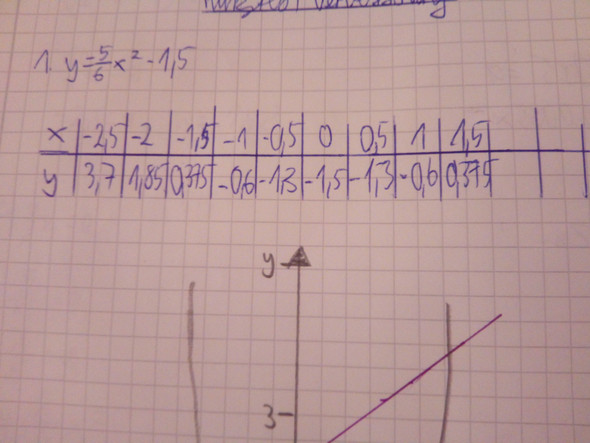 1. y=5/6x²-1,5
x -2,5 -2 -1,5 -1 -0,5 0 0,5 1 1,5
y 3,7 1,85 0,375 -0,6 -1,3 -1,5 -1,3 -0,6 0,375
y
3